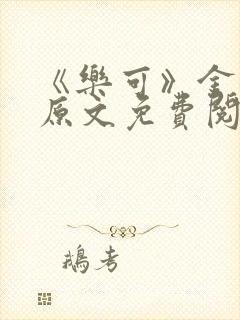 《樂可》金
原文免費閱
鵝考